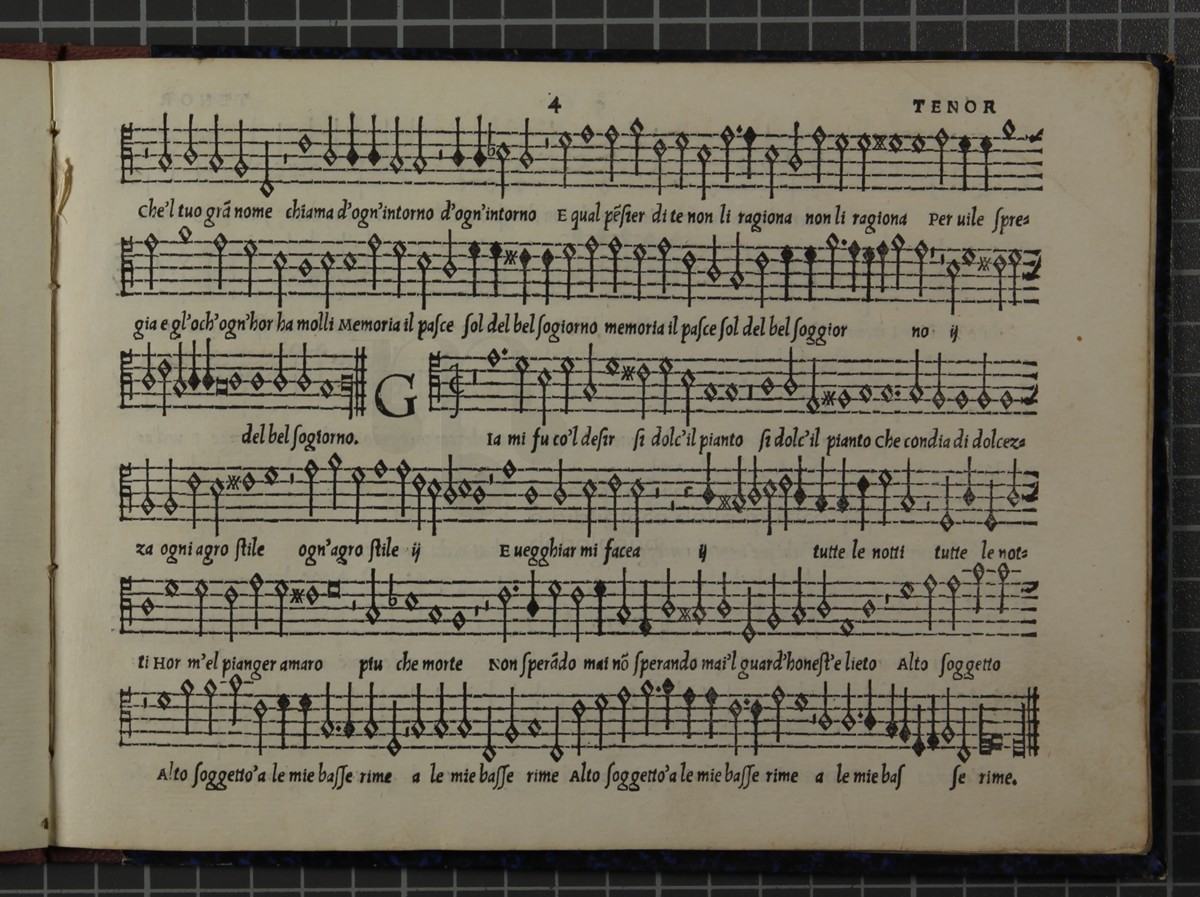 4 TENOR
Che'l tuo grã nome chiama d'ogn'intorno d'ogn'intorno E qual pẽsier di te non li ragiona non li ragiona Per uile spre-
gia e gl'och'ogn'hor ha molli Memoria il pasce sol del bel sogiorno memoria il pasce sol del bel soggior no ij
G
del bel sogiorno. Ia mi fu co'l desir si dolc'il pianto si dolc'il pianto Che condia di dolcez-
za ogni agro stile ogn'agro stile ij E uegghiar mi facea ij tutte le notti tutte le not-
ti Hor m'el pianger amaro piu che morte Non sperãdo mai nõ sperando mai'l guard'honest'e lieto Alto soggetto
Alto soggetto'a le mie basse rime a le mie basse rime Alto soggetto'a le mie basse rime a le mie bas se rime.